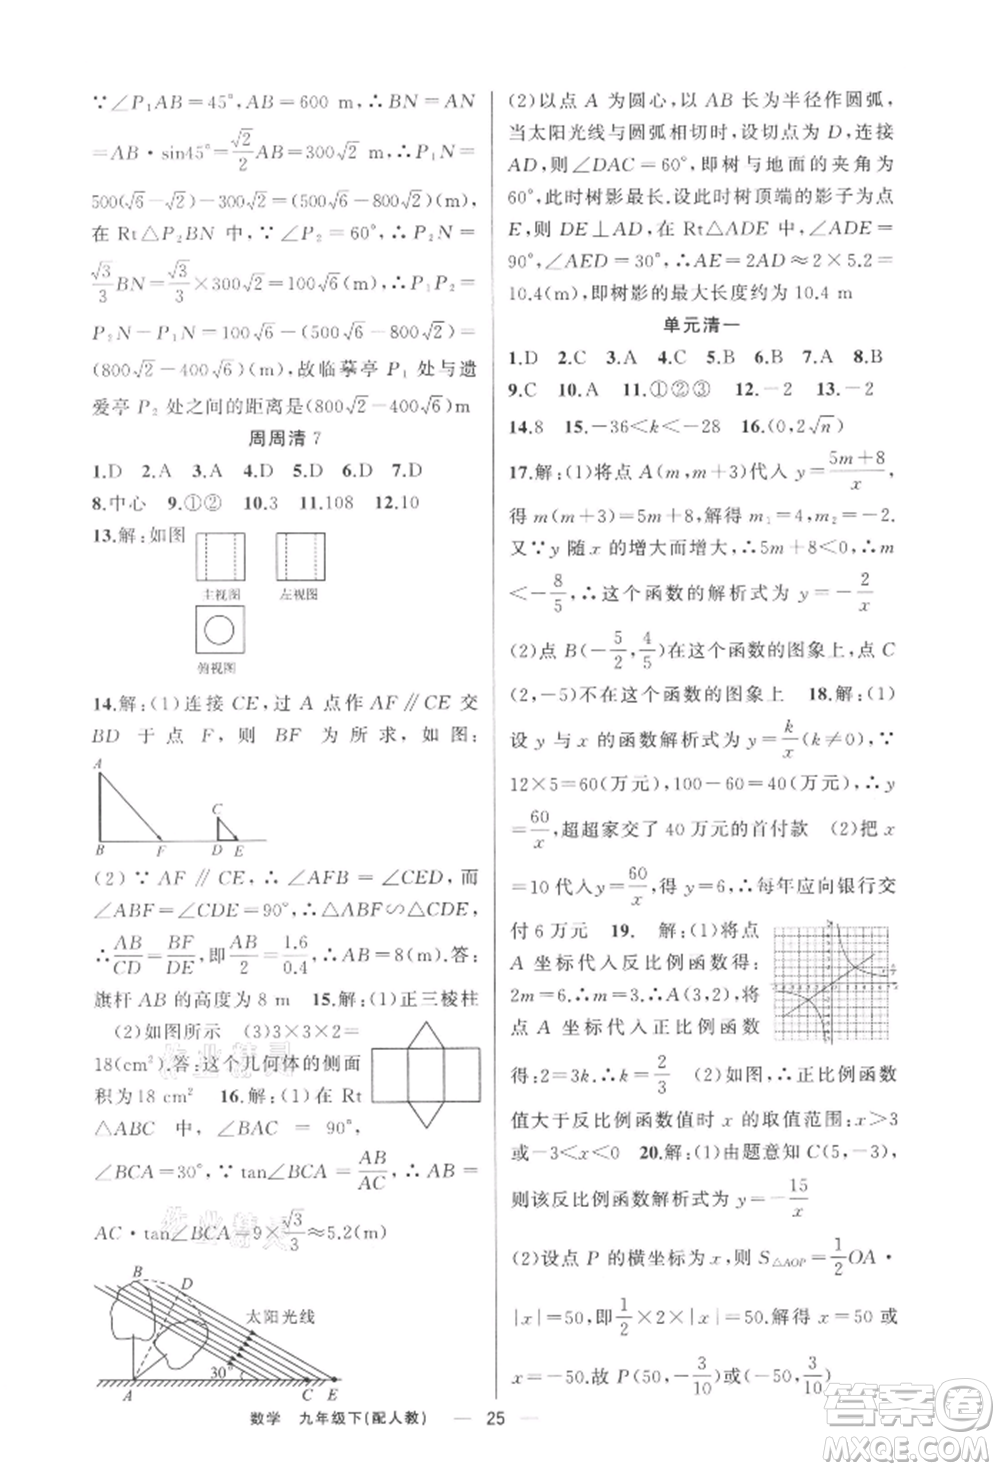 ∵∠P₁AB=45°,AB=600 m,∴BN=AN
=AB·sin45°=√2/2AB=300√2 m,∴P₁N=
500(√6-√2)-300√2=(500√6-800√2)(m),
在 Rt△P₂BN 中,∵∠P₂=60°,∴P₂N=
√3/3BN=√3/3×300√2=100√6(m),∴P₁P₂=
P₂N-P₁N=100√6-(500√6-800√2)
=(800√2-400√6)(m),故临摹亭 P₁ 处与遗
爱亭 P₂ 处之间的距离是(800√2-400√6)m
周周清 7
1.D 2.A 3.A 4.D 5.D 6.D 7.D
8.中心 9.①② 10.3 11.108 12.10
13.解:如图
主视图 左视图
俯视图
14.解:(1)连接 CE,过 A 点作 AF∥CE 交
BD 于点 F,则 BF 为所求,如图:
A
C
B F D E
(2)∵AF∥CE,∴∠AFB=∠CED,而
∠ABF=∠CDE=90°,∴△ABF∽△CDE,
∴AB/CD=BF/DE,即AB/2=1.6/0.4,∴AB=8(m).答:
旗杆 AB 的高度为 8 m 15.解:(1)正三棱柱
(2)如图所示 (3)3×3×2=
18(cm²).答:这个几何体的侧面
积为18 cm² 16.解:(1)在 Rt
△ABC 中,∠BAC=90°,
∠BCA=30°,∵tan∠BCA=AB/AC,∴AB=
AC·tan∠BCA=9×√3/3≈5.2(m)
B D
太阳光线
30°
A C E
(2)以点 A 为圆心,以 AB 长为半径作圆弧,
当太阳光线与圆弧相切时,设切点为 D,连接
AD,则∠DAC=60°,即树与地面的夹角为
60°,此时树影最长.设此时树顶端的影子为点
E,则 DE⊥AD,在 Rt△ADE 中,∠ADE=
90°,∠AED=30°,∴AE=2AD≈2×5.2=
10.4(m),即树影的最大长度约为 10.4 m
单元清一
1.D 2.C 3.A 4.C 5.B 6.B 7.A 8.B
9.C 10.A 11.①②③ 12.-2 13.-2
14.8 15.-36<k<-28 16.(0,2√n)
17.解:(1)将点 A(m,m+3)代入 y=5m+8/x,
得 m(m+3)=5m+8,解得 m₁=4,m₂=-2.
又∵y 随 x 的增大而增大,∴5m+8<0,∴m
<-8/5,∴这个函数的解析式为 y=-2/x
(2)点 B(-5/2,4/5)在这个函数的图象上,点 C
(2,-5)不在这个函数的图象上 18.解:(1)
设 y 与 x 的函数解析式为 y=k/x(k≠0),∵
12×5=60(万元),100-60=40(万元),∴y
=60/x,超超家交了 40 万元的首付款 (2)把 x
=10 代入y=60/x得:y=6,∴每年应向银行交
付 6 万元 19. 解:(1)将点
A 坐标代入反比例函数得:
2m=6,∴m=3,∴A(3,2),将
点 A 坐标代入正比例函数
得:2=3k,∴k=2/3 (2)如图,正比例函数
值大于反比例函数值时 x 的取值范围:x>3
或-3<x<0 20.解:(1)由题意知 C(5,-3),
则该反比例函数解析式为 y=-15/x
(2)设点 P 的横坐标为 x,则 S△AOP=1/2OA·
|x|=50,即1/2×2×|x|=50.解得 x=50 或
x=-50.故 P(50,-3/10)或(-50,3/10)
数学 九年级下(配人教) — 25 —
答案圈
MXQE.COM